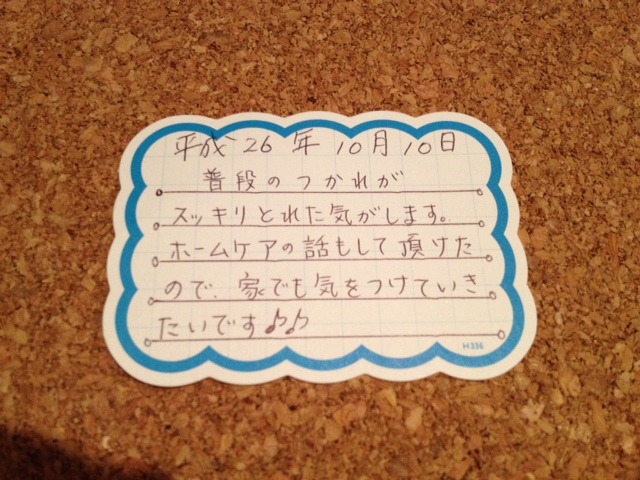 平成26年10月10日
普段のつかれが
スッキリとれた気がします。
ホームケアの話もして頂けた
ので、家でも気をつけていき
たいです♪♪
H336